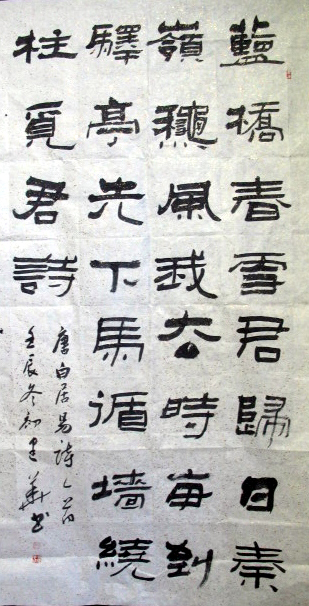 藍橋春雪君歸日秦
嶺穐風我去時每到
驛亭先下馬循墻繞
柱覓君詩
唐白居易詩一首
壬辰冬初建華书